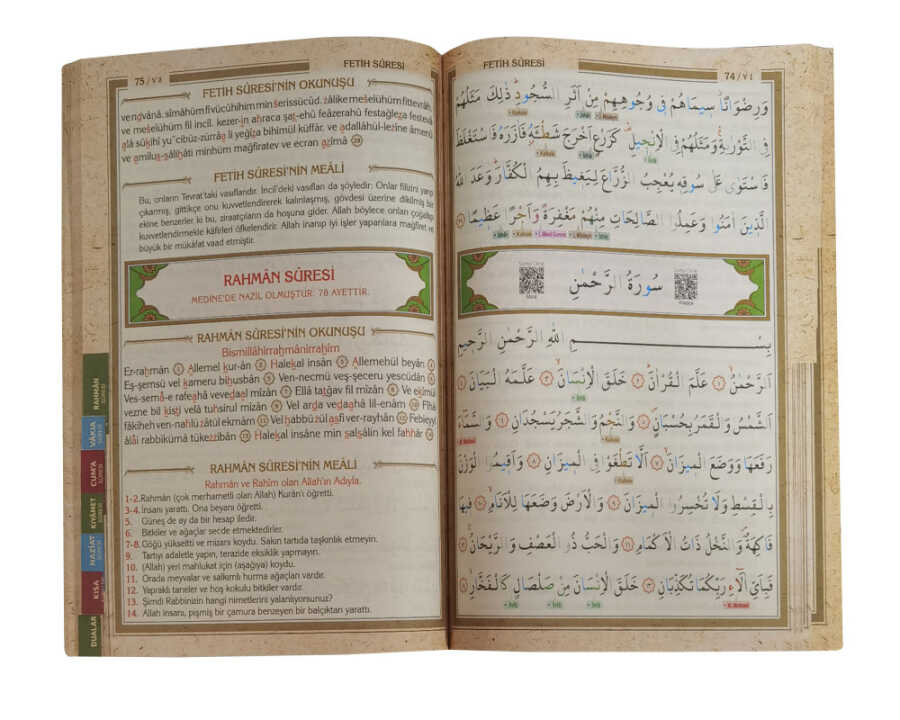 75 / ٧٥
FETİH SÛRESİ
FETİH SÛRESİ'NİN OKUNUŞU
ve rıdvânâ. sîmâhüm fî vücûhihim min eserissücûd. zâlike meselühüm fittevrâh.
ve meselühüm fil incîl. kezer-in ahraca şaṭ-ehû feâzerahû festağleẓa festevâ
alâ sûkıhî yu'cibüz-zürrâa li yeğîza bihimül küffâr. ve adallâhül-lezîne âmenû
ve amilus-sâlihâti minhüm mağfiratev ve ecran azîmâ 29
FETİH SÛRESİ'NİN MEÂLİ
Bu, onların Tevrat'taki vasıflarıdır. İncil'deki vasıfları da şöyledir: Onlar filizini yarıp
çıkarmış, gittikçe onu kuvvetlendirerek kalınlaşmış, gövdesi üzerine dikilmiş bir
ekine benzerler ki bu, ziraatçıların da hoşuna gider. Allah böylece onları çoğaltıp
kuvvetlendirmekle kâfirleri öfkelendirir. Allah inanıp iyi işler yapanlara mağfiret ve
büyük bir mükâfat vaad etmiştir.
RAHMÂN SÛRESİ
MEDİNE'DE NAZİL OLMUŞTUR. 78 AYETTİR.
RAHMÂN SÛRESİ'NİN OKUNUŞU
Bismillâhirraḥmânirraḥîm
Er-raḥmân 1 Allemel kur-ân 2 Halekal insân 3 Allemehül beyân 4
Eş-şemsü vel kameru biḥusbân 5 Ven-necmü veş-şeceru yescüdân 6
Ves-semâ-e rafeahâ vevedaal mîzân 7 Ellâ taṭğav fil mîzân 8 Ve ekîmül
vezne bil kısṭi velâ tuhsirul mîzân 9 Vel arda vedaahâ lil-enâm 10 Fîhâ
fâkihetüv ven-nahlü zâtül ekmâm 11 Vel habbü zül asfi ver-rayḥân 12 Febieyyi
âlâi rabbikümâ tükezzibân 13 Halekal insâne min ṣalṣâlin kel fahhâr 14
RAHMÂN SÛRESİ'NİN MEÂLİ
Rahmân ve Rahîm olan Allah'ın Adıyla.
1-2. Rahmân (çok merhametli olan Allah) Kurân'ı öğretti.
3-4. İnsanı yarattı. Ona beyanı öğretti.
5. Güneş de ay da bir hesap iledir.
6. Bitkiler ve ağaçlar secde etmektedirler.
7-8. Göğü yükseltti ve mizanı koydu. Sakın tartıda taşkınlık etmeyin.
9. Tartıyı adaletle yapın, terazide eksiklik yapmayın.
10. (Allah) yeri mahlukat için (aşağıya) koydu.
11. Orada meyvalar ve salkımlı hurma ağaçları vardır.
12. Yapraklı taneler ve hoş kokulu bitkiler vardır.
13. Şimdi Rabbinizin hangi nimetlerini yalanlıyorsunuz?
14. Allah insanı, pişmiş bir çamura benzeyen bir balçıktan yarattı.
RAHMÂN
VÂKIA
CUM'A
KIYÂMET
NAZİAT
KISA
DUALAR
FETİH SÛRESİ
74 / ٧٤
وَرِضْوَانًا سِيمَاهُمْ فِي وُجُوهِهِمْ مِنْ اَثَرِ السُّجُودِ ذٰلِكَ مَثَلُهُمْ
فِي التَّوْرٰيةِ وَمَثَلُهُمْ فِي الْاِنْجِيلِ كَزَرْعٍ اَخْرَجَ شَطْـَٔهُ فَاٰزَرَهُ فَاسْتَغْلَظَ
فَاسْتَوٰى عَلٰى سُوقِهِ يُعْجِبُ الزُّرَّاعَ لِيَغِيظَ بِهِمُ الْكُفَّارَ وَعَدَ اللّٰهُ
الَّذِينَ اٰمَنُوا وَعَمِلُوا الصَّالِحَاتِ مِنْهُمْ مَغْفِرَةً وَاَجْرًا عَظِيمًا ﴿٢٩﴾
سُورَةُ الرَّحْمٰنِ
بِسْمِ اللّٰهِ الرَّحْمٰنِ الرَّحِيمِ
اَلرَّحْمٰنُ ﴿١﴾ عَلَّمَ الْقُرْاٰنَ ﴿٢﴾ خَلَقَ الْاِنْسَانَ ﴿٣﴾ عَلَّمَهُ الْبَيَانَ ﴿٤﴾
اَلشَّمْسُ وَالْقَمَرُ بِحُسْبَانٍ ﴿٥﴾ وَالنَّجْمُ وَالشَّجَرُ يَسْجُدَانِ ﴿٦﴾ وَالسَّمَٓاءَ
رَفَعَهَا وَوَضَعَ الْمِيزَانَ ﴿٧﴾ اَلَّا تَطْغَوْا فِي الْمِيزَانِ ﴿٨﴾ وَاَقِيمُوا الْوَزْنَ
بِالْقِسْطِ وَلَا تُخْسِرُوا الْمِيزَانَ ﴿٩﴾ وَالْاَرْضَ وَضَعَهَا لِلْاَنَامِ ﴿١٠﴾ فِيهَا
فَاكِهَةٌ وَالنَّخْلُ ذَاتُ الْاَكْمَامِ ﴿١١﴾ وَالْحَبُّ ذُو الْعَصْفِ وَالرَّيْحَانُ ﴿١٢﴾
فَبِاَيِّ اٰلَٓاءِ رَبِّكُمَا تُكَذِّبَانِ ﴿١٣﴾ خَلَقَ الْاِنْسَانَ مِنْ صَلْصَالٍ كَالْفَخَّارِ ﴿١٤﴾